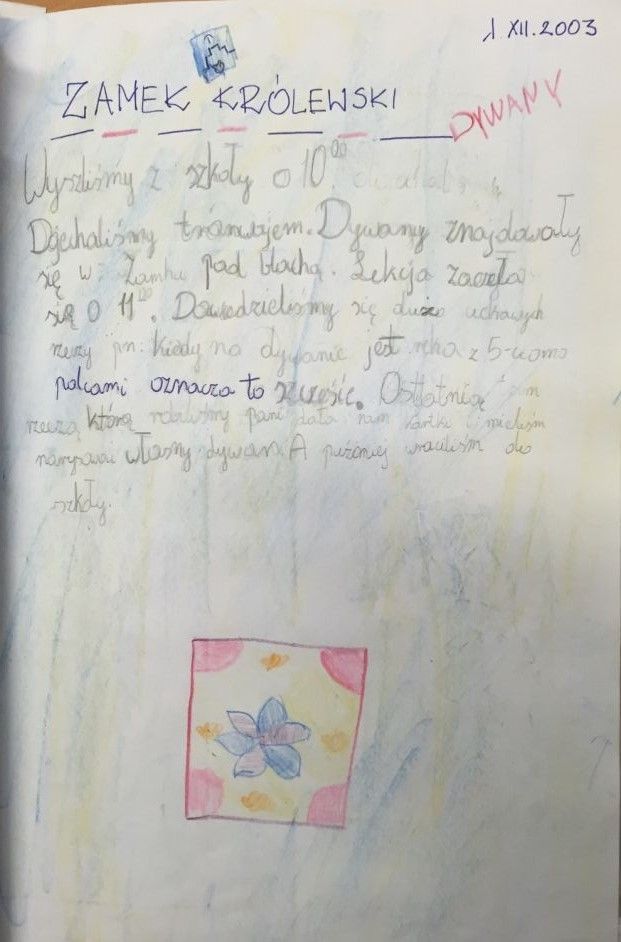 1.XII.2003
ZAMEK KRÓLEWSKI
DYWANY
Wyszliśmy z szkoły o 10⁰⁰.
Dojechaliśmy tramwajem. Dywany znajdowały
się w Zamku pod blachą. Lekcja zaczęła
się o 11⁰⁰. Dowiedzieliśmy się dużo
rzezy pn: Kiedy na dywanie jest ręka z 5-cioma
palcami oznacza to szczęście. Ostatnią
rzeczą którą robiliśmy pani dała nam kartki i mieliśm
narysować własny dywan. A puźniej wraciliśm do
szkoły.